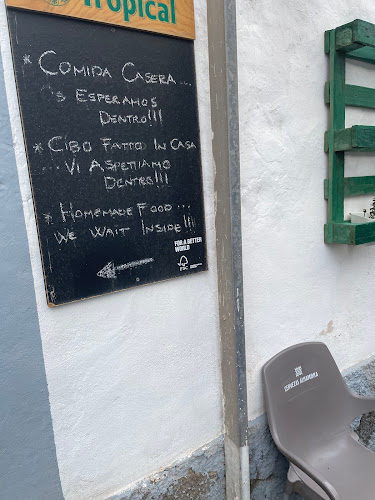 Tropical
* COMIDA CASERA ...
OS ESPERAMOS
DENTRO!!!
* CIBO FATTO IN CASA
... VI ASPETTIAMO
DENTRO!!!
* HOMEMADE FOOD ...
WE WAIT INSIDE!!!
FOR A BETTER
WORLD
FSC